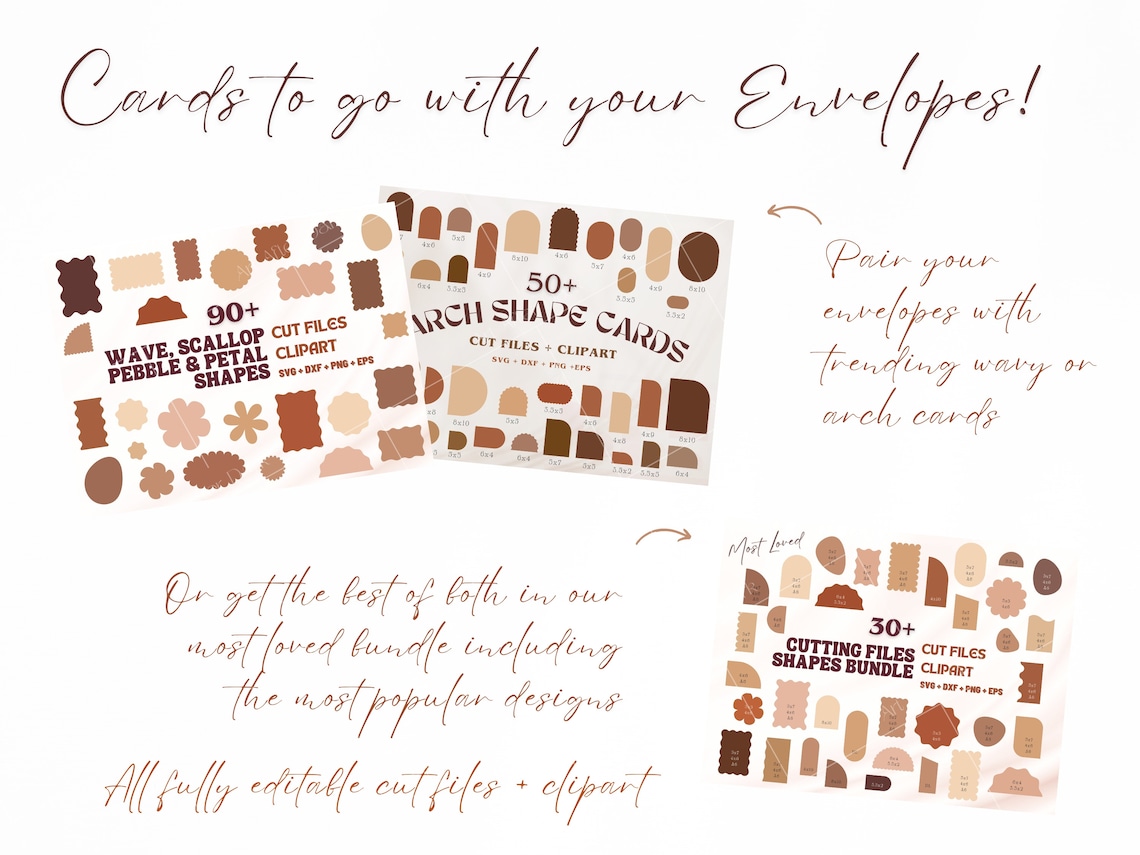 Cards to go with your Envelopes!
90+
WAVE, SCALLOP
PEBBLE & PETAL
SHAPES
CUT FILES
CLIPART
SVG + DXF + PNG + EPS
4x6
5x5
4x9
8x10
5x5
4x6
5x7
4x6
5.5x5
4x9
8x10
6x4
5.5x5
5.5x2
50+
ARCH SHAPE CARDS
CUT FILES + CLIPART
SVG + DXF + PNG +EPS
8x10
5x5
5.5x3
4x8
4x9
8x10
5x5
6x4
6x4
5x7
5x5
5.5x2
5.5x5
6x4
Pair your
envelopes with
trending wavy or
arch cards
Or get the best of both in our
most loved bundle including
the most popular designs
All fully editable cut files + clipart
Most Loved
30+
CUTTING FILES
SHAPES BUNDLE
CUT FILES
CLIPART
SVG + DXF + PNG + EPS